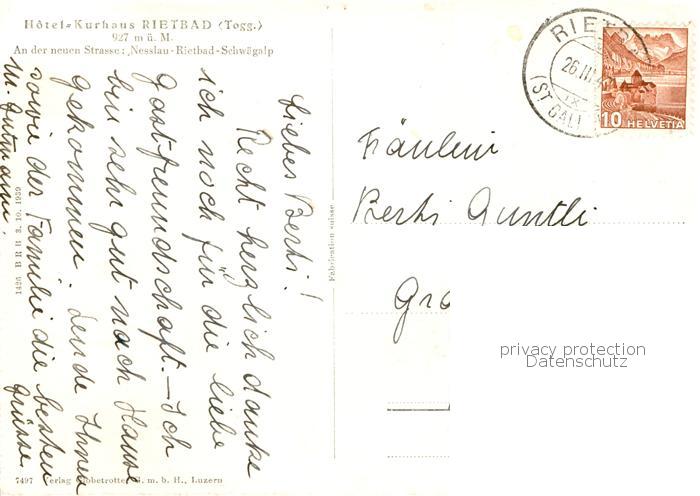 Hôtel-Kurhaus RIETBAD (Togg.)
927 m ü. M.
An der neuen Strasse: Nesslau-Rietbad-Schwägalp
Liebes Berti!
Recht herzlich danke
ich noch für die liebe
Gastfreundschaft. – Ich
bin sehr gut nach Hause
gekommen. Sende Ihnen
sowie der Familie die besten
Grüsse
M. Gutmann.
1426 B R B 3. 10. 1939
Fabrication suisse
7497 Verlag Globetrotter G. m. b. H., Luzern
RIETB
26.III.
IX
(ST GALL
10 HELVETIA
Fräulein
Berti Guntli
Gro
privacy protection
Datenschutz